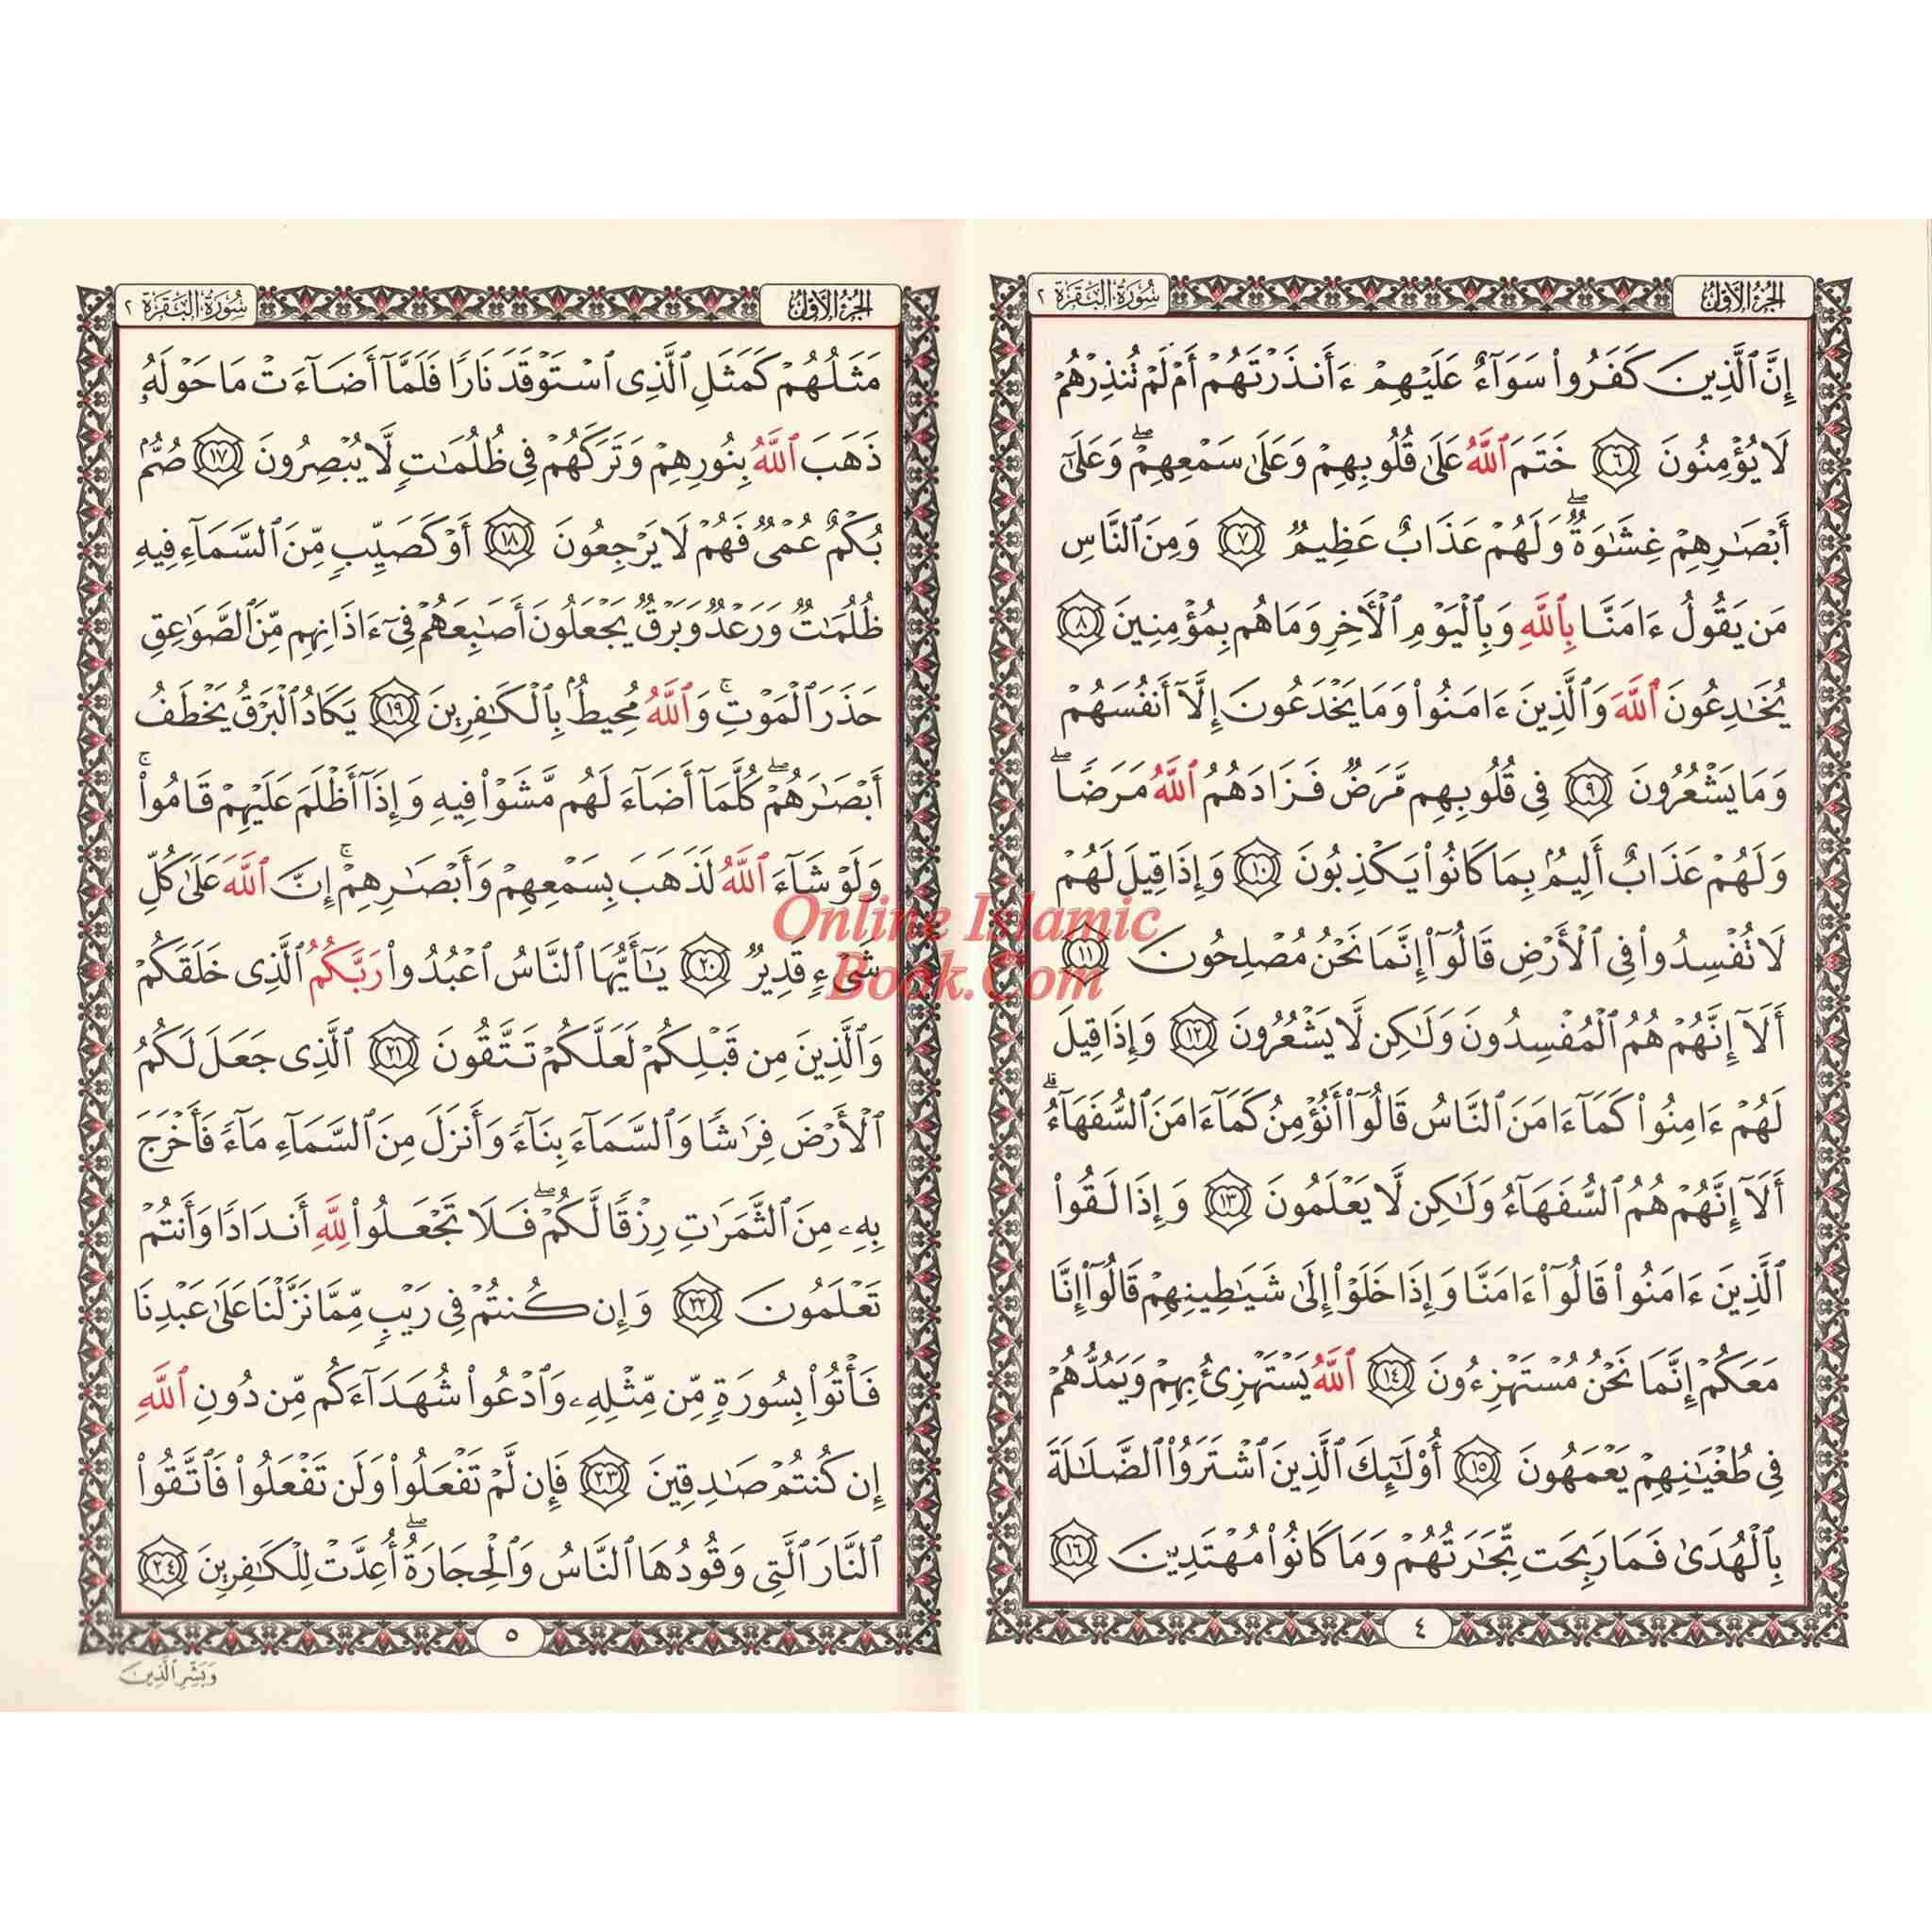 الجزء الأول
سورة البقرة ٢
إِنَّ ٱلَّذِينَ كَفَرُوا۟ سَوَآءٌ عَلَيْهِمْ ءَأَنذَرْتَهُمْ أَمْ لَمْ تُنذِرْهُمْ
لَا يُؤْمِنُونَ ٦ خَتَمَ ٱللَّهُ عَلَىٰ قُلُوبِهِمْ وَعَلَىٰ سَمْعِهِمْ ۖ وَعَلَىٰٓ
أَبْصَٰرِهِمْ غِشَٰوَةٌ ۖ وَلَهُمْ عَذَابٌ عَظِيمٌ ٧ وَمِنَ ٱلنَّاسِ
مَن يَقُولُ ءَامَنَّا بِٱللَّهِ وَبِٱلْيَوْمِ ٱلْأَخِرِ وَمَا هُم بِمُؤْمِنِينَ ٨
يُخَٰدِعُونَ ٱللَّهَ وَٱلَّذِينَ ءَامَنُوا۟ وَمَا يَخْدَعُونَ إِلَّآ أَنفُسَهُمْ
وَمَا يَشْعُرُونَ ٩ فِى قُلُوبِهِم مَّرَضٌ فَزَادَهُمُ ٱللَّهُ مَرَضًا ۖ
وَلَهُمْ عَذَابٌ أَلِيمٌۢ بِمَا كَانُوا۟ يَكْذِبُونَ ١٠ وَإِذَا قِيلَ لَهُمْ
لَا تُفْسِدُوا۟ فِى ٱلْأَرْضِ قَالُوٓا۟ إِنَّمَا نَحْنُ مُصْلِحُونَ ١١
أَلَآ إِنَّهُمْ هُمُ ٱلْمُفْسِدُونَ وَلَٰكِن لَّا يَشْعُرُونَ ١٢ وَإِذَا قِيلَ
لَهُمْ ءَامِنُوا۟ كَمَآ ءَامَنَ ٱلنَّاسُ قَالُوٓا۟ أَنُؤْمِنُ كَمَآ ءَامَنَ ٱلسُّفَهَآءُ ۗ
أَلَآ إِنَّهُمْ هُمُ ٱلسُّفَهَآءُ وَلَٰكِن لَّا يَعْلَمُونَ ١٣ وَإِذَا لَقُوا۟
ٱلَّذِينَ ءَامَنُوا۟ قَالُوٓا۟ ءَامَنَّا وَإِذَا خَلَوْا۟ إِلَىٰ شَيَٰطِينِهِمْ قَالُوٓا۟ إِنَّا
مَعَكُمْ إِنَّمَا نَحْنُ مُسْتَهْزِءُونَ ١٤ ٱللَّهُ يَسْتَهْزِئُ بِهِمْ وَيَمُدُّهُمْ
فِى طُغْيَٰنِهِمْ يَعْمَهُونَ ١٥ أُو۟لَٰٓئِكَ ٱلَّذِينَ ٱشْتَرَوُا۟ ٱلضَّلَٰلَةَ
بِٱلْهُدَىٰ فَمَا رَبِحَت تِّجَٰرَتُهُمْ وَمَا كَانُوا۟ مُهْتَدِينَ ١٦
٤
الجزء الأول
سورة البقرة ٢
مَثَلُهُمْ كَمَثَلِ ٱلَّذِى ٱسْتَوْقَدَ نَارًا فَلَمَّآ أَضَآءَتْ مَا حَوْلَهُۥ
ذَهَبَ ٱللَّهُ بِنُورِهِمْ وَتَرَكَهُمْ فِى ظُلُمَٰتٍ لَّا يُبْصِرُونَ ١٧ صُمٌّۢ
بُكْمٌ عُمْىٌ فَهُمْ لَا يَرْجِعُونَ ١٨ أَوْ كَصَيِّبٍ مِّنَ ٱلسَّمَآءِ فِيهِ
ظُلُمَٰتٌ وَرَعْدٌ وَبَرْقٌ يَجْعَلُونَ أَصَٰبِعَهُمْ فِىٓ ءَاذَانِهِم مِّنَ ٱلصَّوَٰعِقِ
حَذَرَ ٱلْمَوْتِ ۚ وَٱللَّهُ مُحِيطٌۢ بِٱلْكَٰفِرِينَ ١٩ يَكَادُ ٱلْبَرْقُ يَخْطَفُ
أَبْصَٰرَهُمْ ۖ كُلَّمَآ أَضَآءَ لَهُم مَّشَوْا۟ فِيهِ وَإِذَآ أَظْلَمَ عَلَيْهِمْ قَامُوا۟ ۚ
وَلَوْ شَآءَ ٱللَّهُ لَذَهَبَ بِسَمْعِهِمْ وَأَبْصَٰرِهِمْ ۚ إِنَّ ٱللَّهَ عَلَىٰ كُلِّ
شَىْءٍ قَدِيرٌ ٢٠ يَٰٓأَيُّهَا ٱلنَّاسُ ٱعْبُدُوا۟ رَبَّكُمُ ٱلَّذِى خَلَقَكُمْ
وَٱلَّذِينَ مِن قَبْلِكُمْ لَعَلَّكُمْ تَتَّقُونَ ٢١ ٱلَّذِى جَعَلَ لَكُمُ
ٱلْأَرْضَ فِرَٰشًا وَٱلسَّمَآءَ بِنَآءً وَأَنزَلَ مِنَ ٱلسَّمَآءِ مَآءً فَأَخْرَجَ
بِهِۦ مِنَ ٱلثَّمَرَٰتِ رِزْقًا لَّكُمْ ۖ فَلَا تَجْعَلُوا۟ لِلَّهِ أَندَادًا وَأَنتُمْ
تَعْلَمُونَ ٢٢ وَإِن كُنتُمْ فِى رَيْبٍ مِّمَّا نَزَّلْنَا عَلَىٰ عَبْدِنَا
فَأْتُوا۟ بِسُورَةٍ مِّن مِّثْلِهِۦ وَٱدْعُوا۟ شُهَدَآءَكُم مِّن دُونِ ٱللَّهِ
إِن كُنتُمْ صَٰدِقِينَ ٢٣ فَإِن لَّمْ تَفْعَلُوا۟ وَلَن تَفْعَلُوا۟ فَٱتَّقُوا۟
ٱلنَّارَ ٱلَّتِى وَقُودُهَا ٱلنَّاسُ وَٱلْحِجَارَةُ ۖ أُعِدَّتْ لِلْكَٰفِرِينَ ٢٤
٥
وَبَشِّرِ ٱلَّذِينَ
Online Islamic
Book.Com